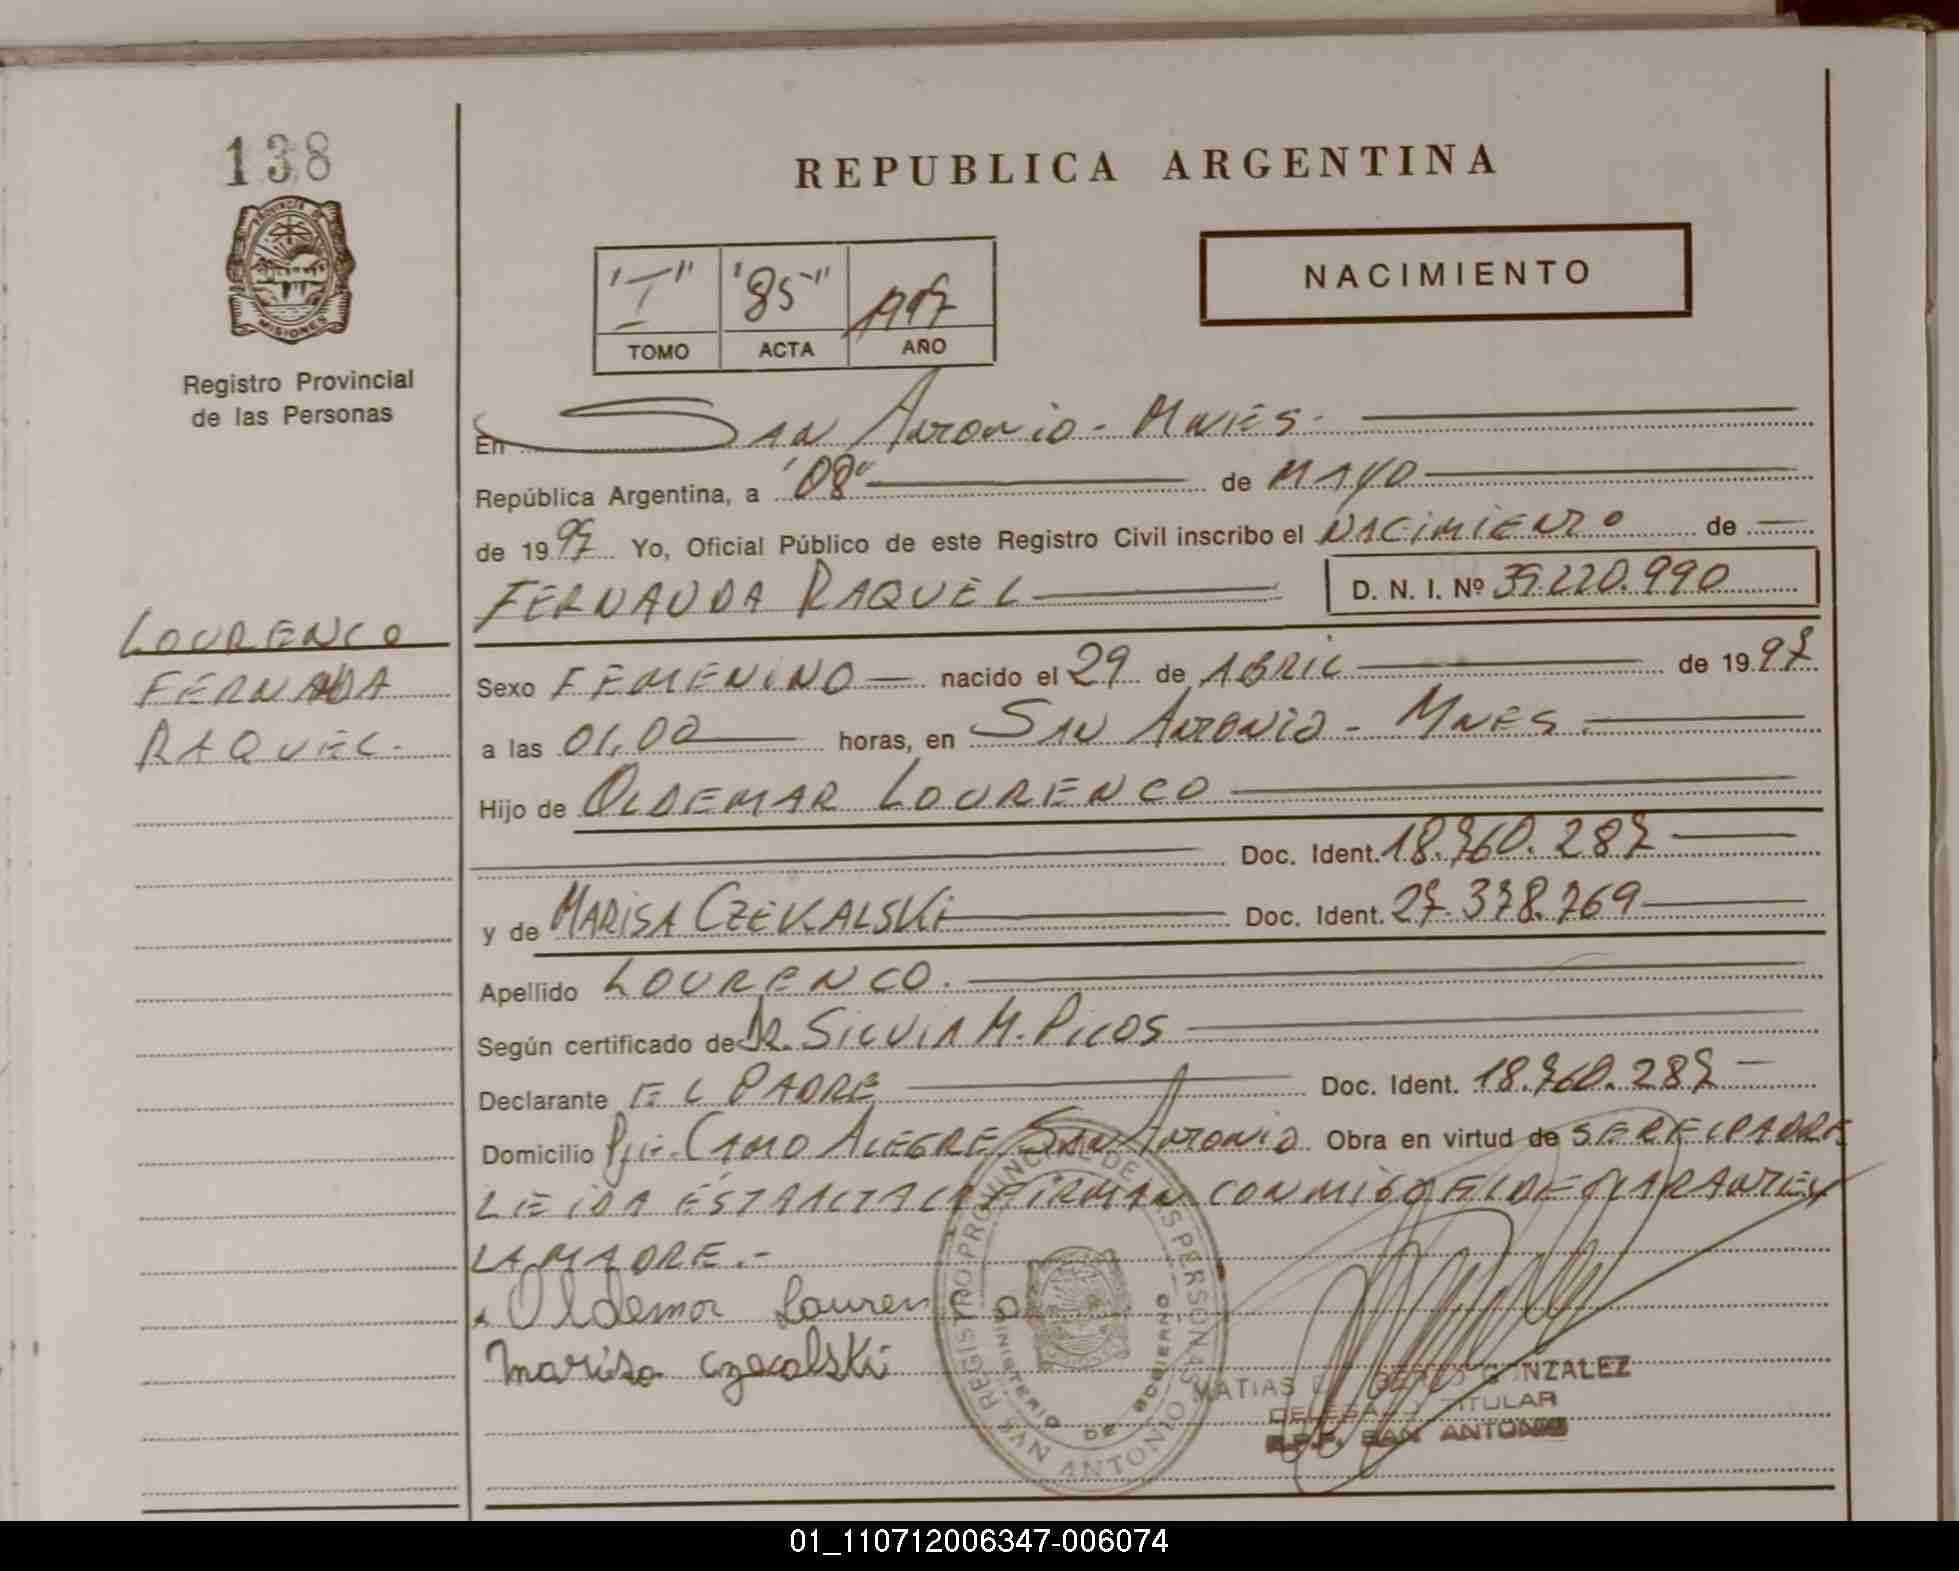 138
REPUBLICA ARGENTINA
PROVINCIA DE
MISIONES
"I" "85" 1997
TOMO ACTA AÑO
NACIMIENTO
Registro Provincial
de las Personas
En SAN ANTONIO - MNES -
República Argentina, a "08" de MAYO
de 1997 Yo, Oficial Público de este Registro Civil inscribo el NACIMIENTO de
FERNANDA RAQUEL D. N. I. Nº 39.220.990
LOURENCO
FERNANDA
RAQUEL.
Sexo FEMENINO nacido el 29 de ABRIL de 1997
a las 01,00 horas, en SAN ANTONIO - MNES -
Hijo de OLDEMAR LOURENCO
Doc. Ident. 18.760.287
y de MARISA CZEKALSKI Doc. Ident. 27.378.769
Apellido LOURENCO.
Según certificado de DR. SILVIA M. PICOS
Declarante EL PADRE Doc. Ident. 18.760.287
Domicilio Pje. CAMO ALEGRE SAN ANTONIO Obra en virtud de SER EL PADRE
LEIDA ESTA ACTA LA FIRMAN CONMIGO EL DECLARANTE Y
LA MADRE.-
Oldemar Lourenco
Marisa Czecalski
REGISTRO PROVINCIAL DE LAS PERSONAS
MINISTERIO DE GOBIERNO
SAN ANTONIO
MATIAS GONZALEZ
DELEGADO TITULAR
R.P.P. SAN ANTONIO
01_110712006347-006074